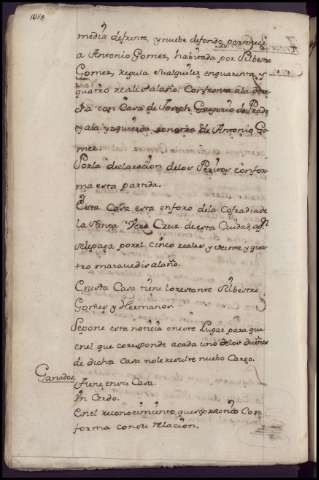 media de frente, y nuebe de fondo, pertenece
a Antonio Gomez, habitada por Silbestre
Gomez, regula su alquiler en quarenta y
quatro reales al año. Confronta a la dra
cha con Casa de Joseph Gregorio de Prado
y a la yzquierda con otra de Antonio Go
mez.
Por la declarazion de los Peritos confor
ma esta partida.
Esta Casa esta en foro de la Cofradia de
la Santa Vera Cruz de esta Ciudad, a qn
se le paga por el cinco reales y veinte y qua
tro maravedis al año.
En esta Casa tiene lo restante Silbestre
Gomez y Hermanos
Se pone esta noticia en este Lugar para que
en el que corresponde a cada uno de los dueños
de dicha Casa no le resulte nuebo Cargo.
Ganados
Tiene en su Casa
Un Cerdo.
En el reconocimiento que se hizo en Con
forma con su relacion.